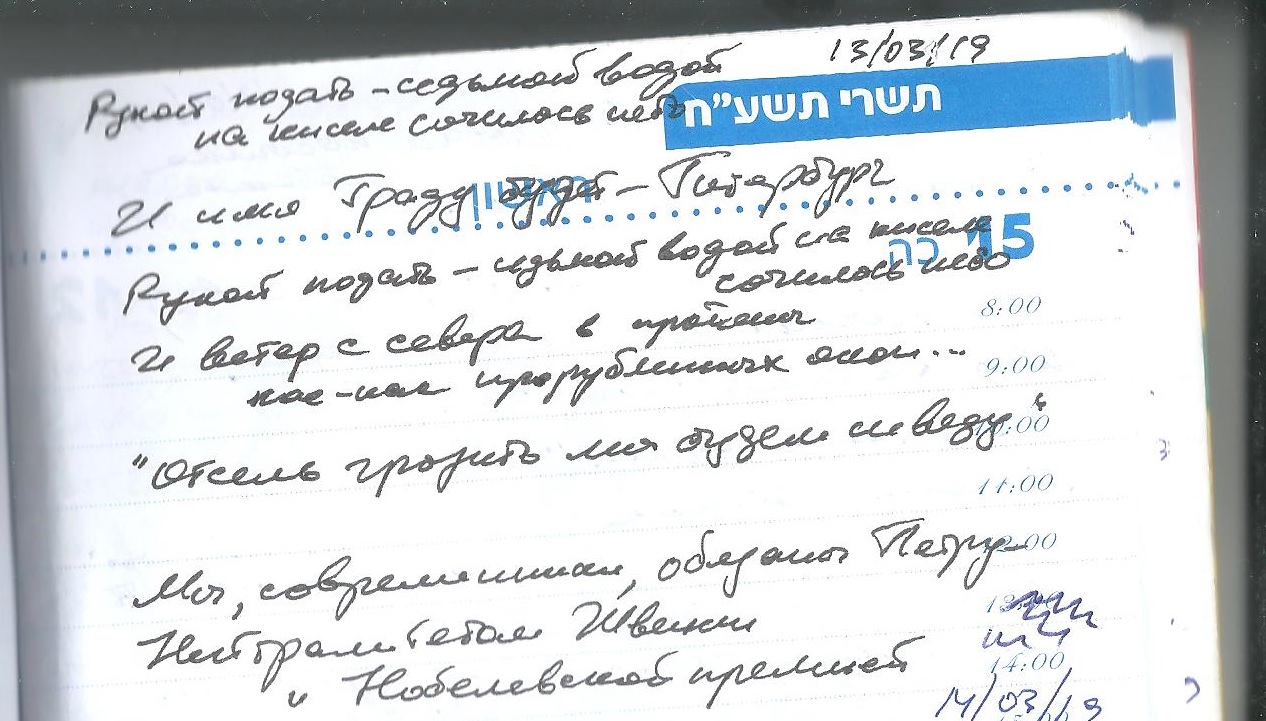 13/03/19
Рукой подать – седьмой водой
на киселе сочилось небо
תשרי תשע״ח
И имя Граду будет – Питербурх
ראשון
15 כה
Рукой подать – седьмой водой на киселе
сочилось небо
8:00
И ветер с севера в проёмы
кое-как прорубленных окон...
9:00
"Отсель грозить мы будем шведу"
10:00
11:00
Мы, современники, обязаны Петру
12:00
Нейтралитетом Швеции
13:00
и Нобелевской премией
14:00
14/03/19